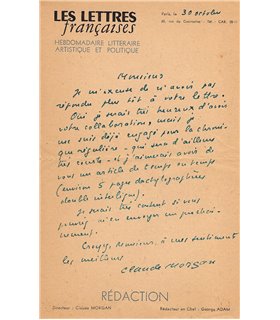 LES LETTRES
françaises
HEBDOMADAIRE LITTERAIRE
ARTISTIQUE ET POLITIQUE
Paris, le 30 octobre
Monsieur
Je m'excuse de n'avoir pas
répondu plus tôt à votre lettre.
Oui, je serais très heureux d'avoir
votre collaboration, mais je
me suis déjà engagé pour la chroni-
que régulière - qui sera d'ailleurs
très courte - et j'aimerais avoir de
vous un article de temps en temps
(environ 5 pages dactylographiées
double interligne).
Je serais très content si vous
pouviez m'en envoyer un prochai-
nement.
Croyez, Monsieur, à mes sentiments
les meilleurs
Claude Morgan
RÉDACTION
Directeur : Claude MORGAN
Rédacteur en Chef : George ADAM